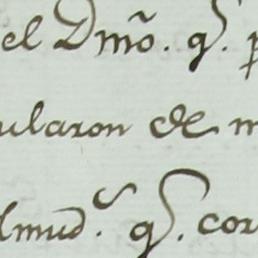 el Dmõ. q.
ularon de m
lmud.ˢ q. cor